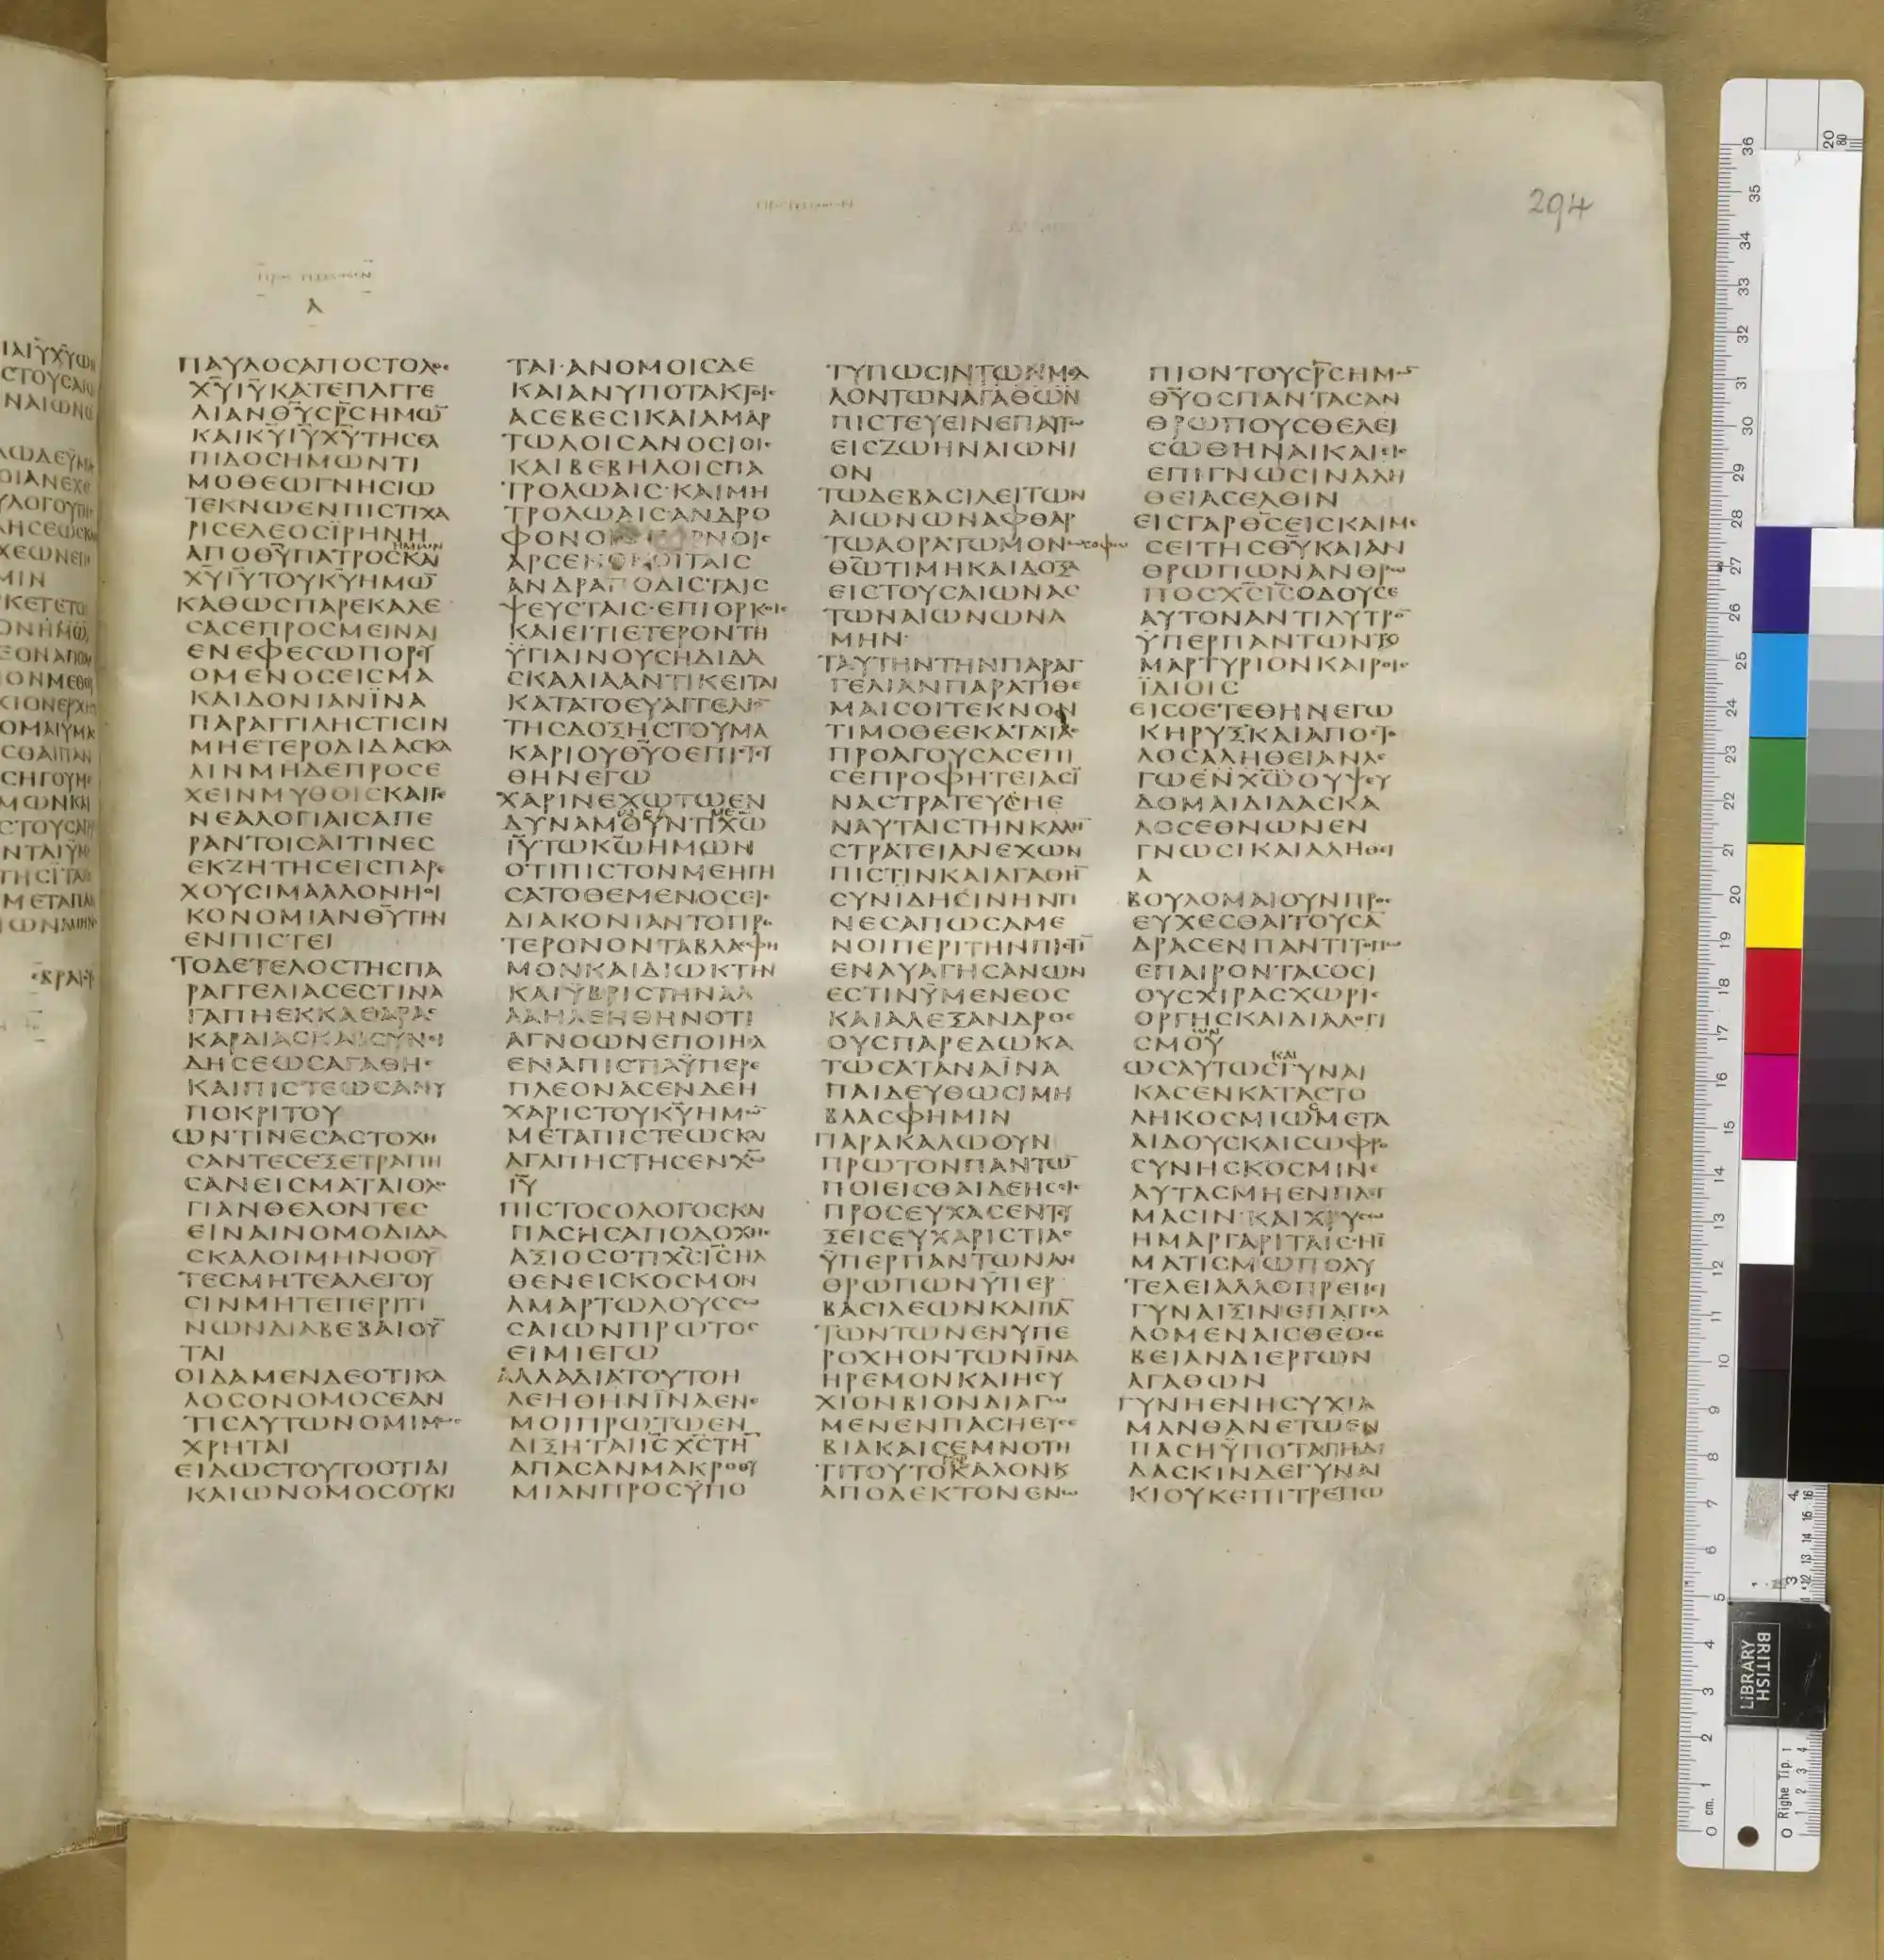 294
ΠΡΟϹ ΤΙΜΟΘΕΟΝ
Α
ΠΑΥΛΟϹΑΠΟϹΤΟΛΟϹ
Χ̅Υ̅Ι̅Υ̅ΚΑΤΕΠΑΓΓΕ
ΛΙΑΝΘ̅Υ̅Ϲ̅Ρ̅Ϲ̅ΗΜΩ̅
ΚΑΙΚ̅Υ̅Ι̅Υ̅Χ̅Υ̅ΤΗϹΕΛ
ΠΙΔΟϹΗΜΩΝΤΙ
ΜΟΘΕΩΓΝΗϹΙΩ
ΤΕΚΝΩΕΝΠΙϹΤΙΧΑ
ΡΙϹΕΛΕΟϹΪΡΗΝΗ
ΗΜΩΝ
ΑΠΟΘ̅Υ̅ΠΑΤΡΟϹΚΑΙ
Χ̅Υ̅Ι̅Υ̅ΤΟΥΚ̅Υ̅ΗΜΩ̅
ΚΑΘΩϹΠΑΡΕΚΑΛΕ
ϹΑϹΕΠΡΟϹΜΕΙΝΑΙ
ΕΝΕΦΕϹΩΠΟΡΕΥ
ΟΜΕΝΟϹΕΙϹΜΑ
ΚΑΙΔΟΝΙΑΝΪΝΑ
ΠΑΡΑΓΓΙΛΗϹΤΙϹΙΝ
ΜΗΕΤΕΡΟΔΙΔΑϹΚΑ
ΛΙΝΜΗΔΕΠΡΟϹΕ
ΧΕΙΝΜΥΘΟΙϹΚΑΙΓΕ
ΝΕΑΛΟΓΙΑΙϹΑΠΕ
ΡΑΝΤΟΙϹΑΙΤΙΝΕϹ
ΕΚΖΗΤΗϹΕΙϹΠΑΡΕ
ΧΟΥϹΙΜΑΛΛΟΝΗΟΙ
ΚΟΝΟΜΙΑΝΘ̅Υ̅ΤΗΝ
ΕΝΠΙϹΤΕΙ
ΤΟΔΕΤΕΛΟϹΤΗϹΠΑ
ΡΑΓΓΕΛΙΑϹΕϹΤΙΝΑ
ΓΑΠΗΕΚΚΑΘΑΡΑϹ
ΚΑΡΔΙΑϹΚΑΙϹΥΝΕΙ
ΔΗϹΕΩϹΑΓΑΘΗϹ
ΚΑΙΠΙϹΤΕΩϹΑΝΥ
ΠΟΚΡΙΤΟΥ
ΩΝΤΙΝΕϹΑϹΤΟΧΗ
ϹΑΝΤΕϹΕΞΕΤΡΑΠΗ
ϹΑΝΕΙϹΜΑΤΑΙΟΛΟ
ΓΙΑΝΘΕΛΟΝΤΕϹ
ΕΙΝΑΙΝΟΜΟΔΙΔΑ
ϹΚΑΛΟΙΜΗΝΟΟΥ
ΤΕϹΜΗΤΕΑΛΕΓΟΥ
ϹΙΝΜΗΤΕΠΕΡΙΤΙ
ΝΩΝΔΙΑΒΕΒΑΙΟΥ̅
ΤΑΙ
ΟΙΔΑΜΕΝΔΕΟΤΙΚΑ
ΛΟϹΟΝΟΜΟϹΕΑΝ
ΤΙϹΑΥΤΩΝΟΜΙΜΩϹ
ΧΡΗΤΑΙ
ΕΙΔΩϹΤΟΥΤΟΟΤΙΔΙ
ΚΑΙΩΝΟΜΟϹΟΥΚΙ
ΤΑΙ·ΑΝΟΜΟΙϹΔΕ
ΚΑΙΑΝΥΠΟΤΑΚΤΟΙϹ
ΑϹΕΒΕϹΙΚΑΙΑΜΑΡ
ΤΩΛΟΙϹΑΝΟϹΙΟΙϹ
ΚΑΙΒΕΒΗΛΟΙϹΠΑ
ΤΡΟΛΩΑΙϹ·ΚΑΙΜΗ
ΤΡΟΛΩΑΙϹ·ΑΝΔΡΟ
ΦΟΝΟΙϹΠΟΡΝΟΙϹ
ΑΡϹΕΝΟΚΟΙΤΑΙϹ
ΑΝΔΡΑΠΟΔΙϹΤΑΙϹ
ΨΕΥϹΤΑΙϹ·ΕΠΙΟΡΚΟΙϹ
ΚΑΙΕΙΤΙΕΤΕΡΟΝΤΗ
ΫΓΙΑΙΝΟΥϹΗΔΙΔΑ
ϹΚΑΛΙΑΑΝΤΙΚΕΙΤΑΙ
ΚΑΤΑΤΟΕΥΑΓΓΕΛΙΟ̅
ΤΗϹΔΟΞΗϹΤΟΥΜΑ
ΚΑΡΙΟΥΘ̅Υ̅ΟΕΠΙϹΤΕΥ
ΘΗΝΕΓΩ
ΧΑΡΙΝΕΧΩΤΩΕΝ
ΔΥΝΑΜΟΥΝΤΙΧ̅Ω̅
Ι̅Υ̅ΤΩΚ̅Ω̅ΗΜΩΝ
ΟΤΙΠΙϹΤΟΝΜΕΗΓΗ
ϹΑΤΟΘΕΜΕΝΟϹΕΙϹ
ΔΙΑΚΟΝΙΑΝΤΟΠΡΟ
ΤΕΡΟΝΟΝΤΑΒΛΑϹΦΗ
ΜΟΝΚΑΙΔΙΩΚΤΗΝ
ΚΑΙΫΒΡΙϹΤΗΝΑΛ
ΛΑΗΛΕΗΘΗΝΟΤΙ
ΑΓΝΟΩΝΕΠΟΙΗϹΑ
ΕΝΑΠΙϹΤΙΑΫΠΕΡΕ
ΠΛΕΟΝΑϹΕΝΔΕΗ
ΧΑΡΙϹΤΟΥΚ̅Υ̅ΗΜΩ̅
ΜΕΤΑΠΙϹΤΕΩϹΚΑΙ
ΑΓΑΠΗϹΤΗϹΕΝΧ̅Ω̅
Ι̅Υ̅
ΠΙϹΤΟϹΟΛΟΓΟϹΚΑΙ
ΠΑϹΗϹΑΠΟΔΟΧΗϹ
ΑΞΙΟϹΟΤΙΧ̅Ϲ̅Ι̅Ϲ̅ΗΛ
ΘΕΝΕΙϹΚΟϹΜΟΝ
ΑΜΑΡΤΩΛΟΥϹϹΩ
ϹΑΙΩΝΠΡΩΤΟϹ
ΕΙΜΙΕΓΩ
ΑΛΛΑΔΙΑΤΟΥΤΟΗ
ΛΕΗΘΗΝΪΝΑΕΝΕ
ΜΟΙΠΡΩΤΩΕΝ
ΔΙΞΗΤΑΙΙ̅Ϲ̅Χ̅Ϲ̅ΤΗ̅
ΑΠΑϹΑΝΜΑΚΡΟΘΥ
ΜΙΑΝΠΡΟϹΫΠΟ
ΤΥΠΩϹΙΝΤΩΝΜΕΛ
ΛΟΝΤΩΝΑΓΑΘΩΝ
ΠΙϹΤΕΥΕΙΝΕΠΑΥΤΩ
ΕΙϹΖΩΗΝΑΙΩΝΙ
ΟΝ
ΤΩΔΕΒΑϹΙΛΕΙΤΩΝ
ΑΙΩΝΩΝΑΦΘΑΡ
ΤΩΑΟΡΑΤΩΜΟΝΩϹΟΦΩ
Θ̅Ω̅ΤΙΜΗΚΑΙΔΟΞΑ
ΕΙϹΤΟΥϹΑΙΩΝΑϹ
ΤΩΝΑΙΩΝΩΝΑ
ΜΗΝ·
ΤΑΥΤΗΝΤΗΝΠΑΡΑΓ
ΓΕΛΙΑΝΠΑΡΑΤΙΘΕ
ΜΑΙϹΟΙΤΕΚΝΟΝ
ΤΙΜΟΘΕΕΚΑΤΑΤΑϹ
ΠΡΟΑΓΟΥϹΑϹΕΠΙ
ϹΕΠΡΟΦΗΤΕΙΑϹΪ
ΝΑϹΤΡΑΤΕΥϹΗΕ
ΝΑΥΤΑΙϹΤΗΝΚΑΛΗ̅
ϹΤΡΑΤΕΙΑΝΕΧΩΝ
ΠΙϹΤΙΝΚΑΙΑΓΑΘΗ̅
ϹΥΝΙΔΗϹΙΝΗΝΤΙ
ΝΕϹΑΠΩϹΑΜΕ
ΝΟΙΠΕΡΙΤΗΝΠΙϹΤΙ̅
ΕΝΑΥΑΓΗϹΑΝΩΝ
ΕϹΤΙΝΫΜΕΝΕΟϹ
ΚΑΙΑΛΕΞΑΝΔΡΟϹ
ΟΥϹΠΑΡΕΔΩΚΑ
ΤΩϹΑΤΑΝΑΪΝΑ
ΠΑΙΔΕΥΘΩϹΙΜΗ
ΒΛΑϹΦΗΜΙΝ
ΠΑΡΑΚΑΛΩΟΥΝ
ΠΡΩΤΟΝΠΑΝΤΩ̅
ΠΟΙΕΙϹΘΑΙΔΕΗϹΕΙϹ
ΠΡΟϹΕΥΧΑϹΕΝΤΕΥ
ΞΕΙϹΕΥΧΑΡΙϹΤΙΑϹ
ΫΠΕΡΠΑΝΤΩΝΑΝ
ΘΡΩΠΩΝΫΠΕΡ
ΒΑϹΙΛΕΩΝΚΑΙΠΑ̅
ΤΩΝΤΩΝΕΝΥΠΕ
ΡΟΧΗΟΝΤΩΝΪΝΑ
ΗΡΕΜΟΝΚΑΙΗϹΥ
ΧΙΟΝΒΙΟΝΔΙΑΓΩ
ΜΕΝΕΝΠΑϹΗΕΥϹΕ
ΒΙΑΚΑΙϹΕΜΝΟΤΗ
ΓΑΡ
ΤΙΤΟΥΤΟΚΑΛΟΝΚ
ΑΠΟΔΕΚΤΟΝΕΝΩ
ΠΙΟΝΤΟΥϹ̅Ρ̅Ϲ̅ΗΜΩ̅
Θ̅Υ̅ΟϹΠΑΝΤΑϹΑΝ
ΘΡΩΠΟΥϹΘΕΛΕΙ
ϹΩΘΗΝΑΙΚΑΙΕΙϹ
ΕΠΙΓΝΩϹΙΝΑΛΗ
ΘΕΙΑϹΕΛΘΙΝ
ΕΙϹΓΑΡΘ̅Ϲ̅ΕΙϹΚΑΙΜΕ
ϹΕΙΤΗϹΘ̅Υ̅ΚΑΙΑΝ
ΘΡΩΠΩΝΑΝΘΡΩ
ΠΟϹΧ̅Ϲ̅Ι̅Ϲ̅ΟΔΟΥϹΕ
ΑΥΤΟΝΑΝΤΙΛΥΤΡΟ̅
ΫΠΕΡΠΑΝΤΩΝΤΟ
ΜΑΡΤΥΡΙΟΝΚΑΙΡΟΙϹ
ΪΔΙΟΙϹ
ΕΙϹΟΕΤΕΘΗΝΕΓΩ
ΚΗΡΥΞΚΑΙΑΠΟϹΤΟ
ΛΟϹΑΛΗΘΕΙΑΝΛΕ
ΓΩΕΝΧ̅Ω̅ΟΥΨΕΥ
ΔΟΜΑΙΔΙΔΑϹΚΑ
ΛΟϹΕΘΝΩΝΕΝ
ΓΝΩϹΙΚΑΙΑΛΗΘΕΙ
Α
ΒΟΥΛΟΜΑΙΟΥΝΠΡΟϹ
ΕΥΧΕϹΘΑΙΤΟΥϹΑ̅
ΔΡΑϹΕΝΠΑΝΤΙΤΟΠΩ
ΕΠΑΙΡΟΝΤΑϹΟϹΙ
ΟΥϹΧΙΡΑϹΧΩΡΙϹ
ΟΡΓΗϹΚΑΙΔΙΑΛΟΓΙ
ϹΜΟΥ
ΚΑΙ
ΩϹΑΥΤΩϹΓΥΝΑΙ
ΚΑϹΕΝΚΑΤΑϹΤΟ
ΛΗΚΟϹΜΙΩΜΕΤΑ
ΑΙΔΟΥϹΚΑΙϹΩΦΡΟ
ϹΥΝΗϹΚΟϹΜΙΝΕ
ΑΥΤΑϹΜΗΕΝΠΛΕΓ
ΜΑϹΙΝ·ΚΑΙΧΡΥϹΩ
ΗΜΑΡΓΑΡΙΤΑΙϹ·ΗΪ
ΜΑΤΙϹΜΩΠΟΛΥ
ΤΕΛΕΙΑΛΛΟΠΡΕΠΕΙ
ΓΥΝΑΙΞΙΝΕΠΑΓΓΕΛ
ΛΟΜΕΝΑΙϹΘΕΟϹΕ
ΒΕΙΑΝΔΙΕΡΓΩΝ
ΑΓΑΘΩΝ
ΓΥΝΗΕΝΗϹΥΧΙΑ
ΜΑΝΘΑΝΕΤΩΕΝ
ΠΑϹΗΫΠΟΤΑΓΗΔΙ
ΔΑϹΚΙΝΔΕΓΥΝΑΙ
ΚΙΟΥΚΕΠΙΤΡΕΠΩ
BRITISH
LIBRARY